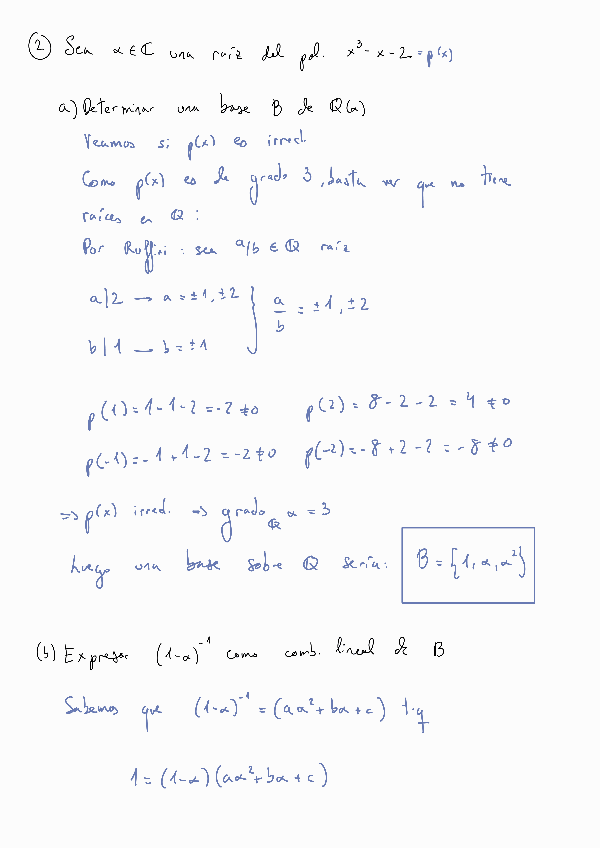 ② Sea α ∈ ℂ una raíz del pol. x³ - x - 2 = p(x)
a) Determinar una base B de ℚ(α)
Veamos si p(x) es irred.
Como p(x) es de grado 3, basta ver que no tiene
raíces en ℚ:
Por Ruffini: sea a/b ∈ ℚ raíz
a|2 → a = ±1, ±2
a/b = ±1, ±2
b|1 → b = ±1
p(1) = 1 - 1 - 2 = -2 ≠ 0 p(2) = 8 - 2 - 2 = 4 ≠ 0
p(-1) = -1 + 1 - 2 = -2 ≠ 0 p(-2) = -8 + 2 - 2 = -8 ≠ 0
⇒ p(x) irred. ⇒ grado_ℚ α = 3
Luego una base sobre ℚ sería: B = {1, α, α²}
(b) Expresar (1-α)⁻¹ como comb. lineal de B
Sabemos que (1-α)⁻¹ = (aα² + bα + c) t.q
1 = (1-α)(aα² + bα + c)